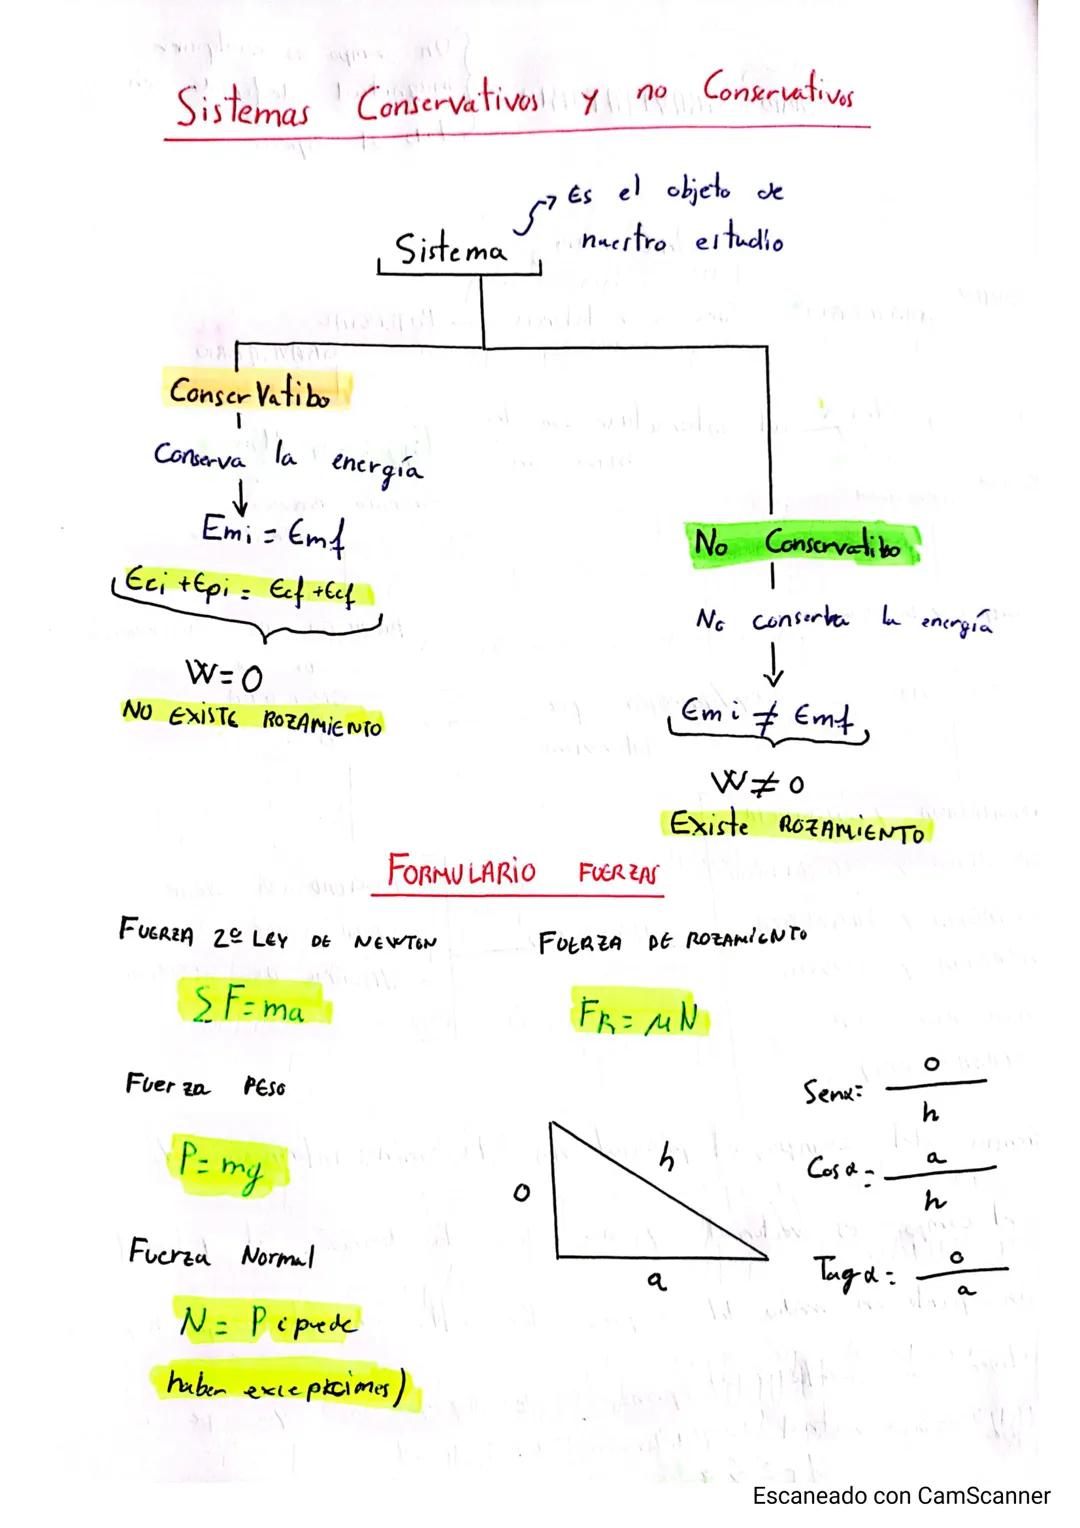 Sistemas Conservativos y no Conservativos
Es el objeto de
nuestro estudio
Sistema
Conservatibo
Conserva la energía
Emi = Emf
Eci + Epi = Ecf + Ecf
W = 0
NO EXISTE ROZAMIENTO
No Conservatibo
No conserba la energía
Emi ≠ Emf
W ≠ 0
Existe ROZAMIENTO
FORMULARIO FUERZAS
FUERZA 2º LEY DE NEWTON
Σ F = ma
Fuerza PESO
P = mg
Fuerza Normal
N = P (puede
haber excepciones)
FUERZA DE ROZAMIENTO
FR = μN
o
h
a
Senα = o/h
Cosα = a/h
Tagα = o/a
Escaneado con CamScanner